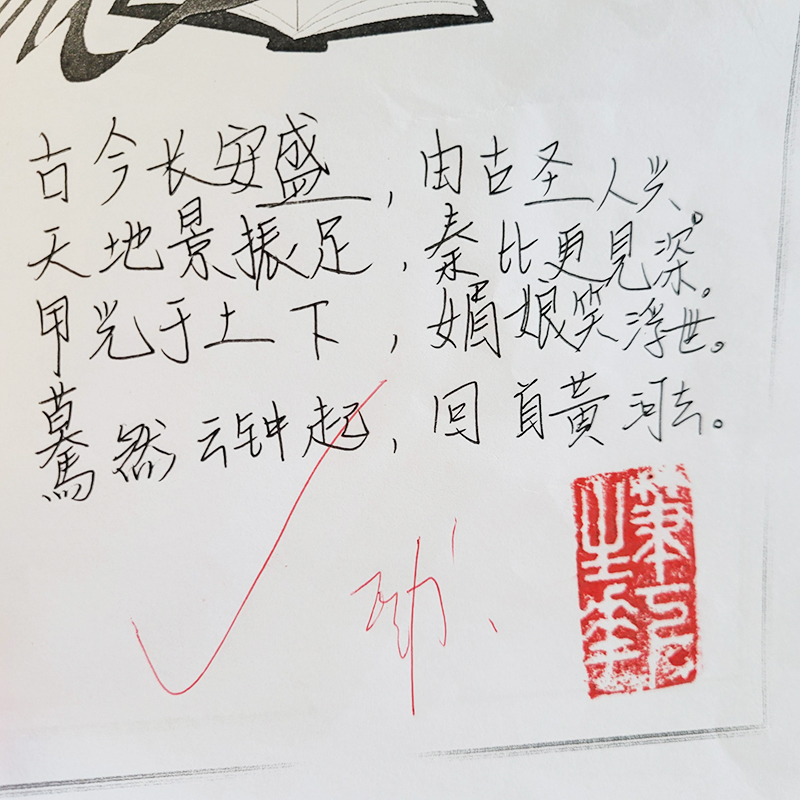 古今长安盛，由古圣人兴。
天地景振足，秦比更见深。
甲光于土下，媚娘笑浮世。
蓦然云钟起，回首黄河去。